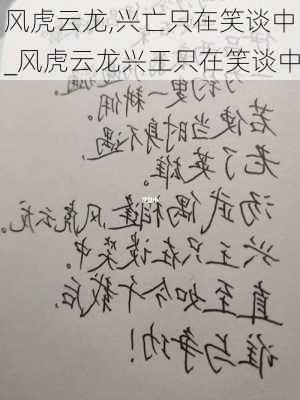 风虎云龙,兴亡只在笑谈中
_风虎云龙兴王只在笑谈中
钓叟一耕佣。
若使当时身不遇,
老了英雄。
汤武偶相逢,风虎云龙。
兴王只在谈笑中。
直至如今千载后,
谁与争功!